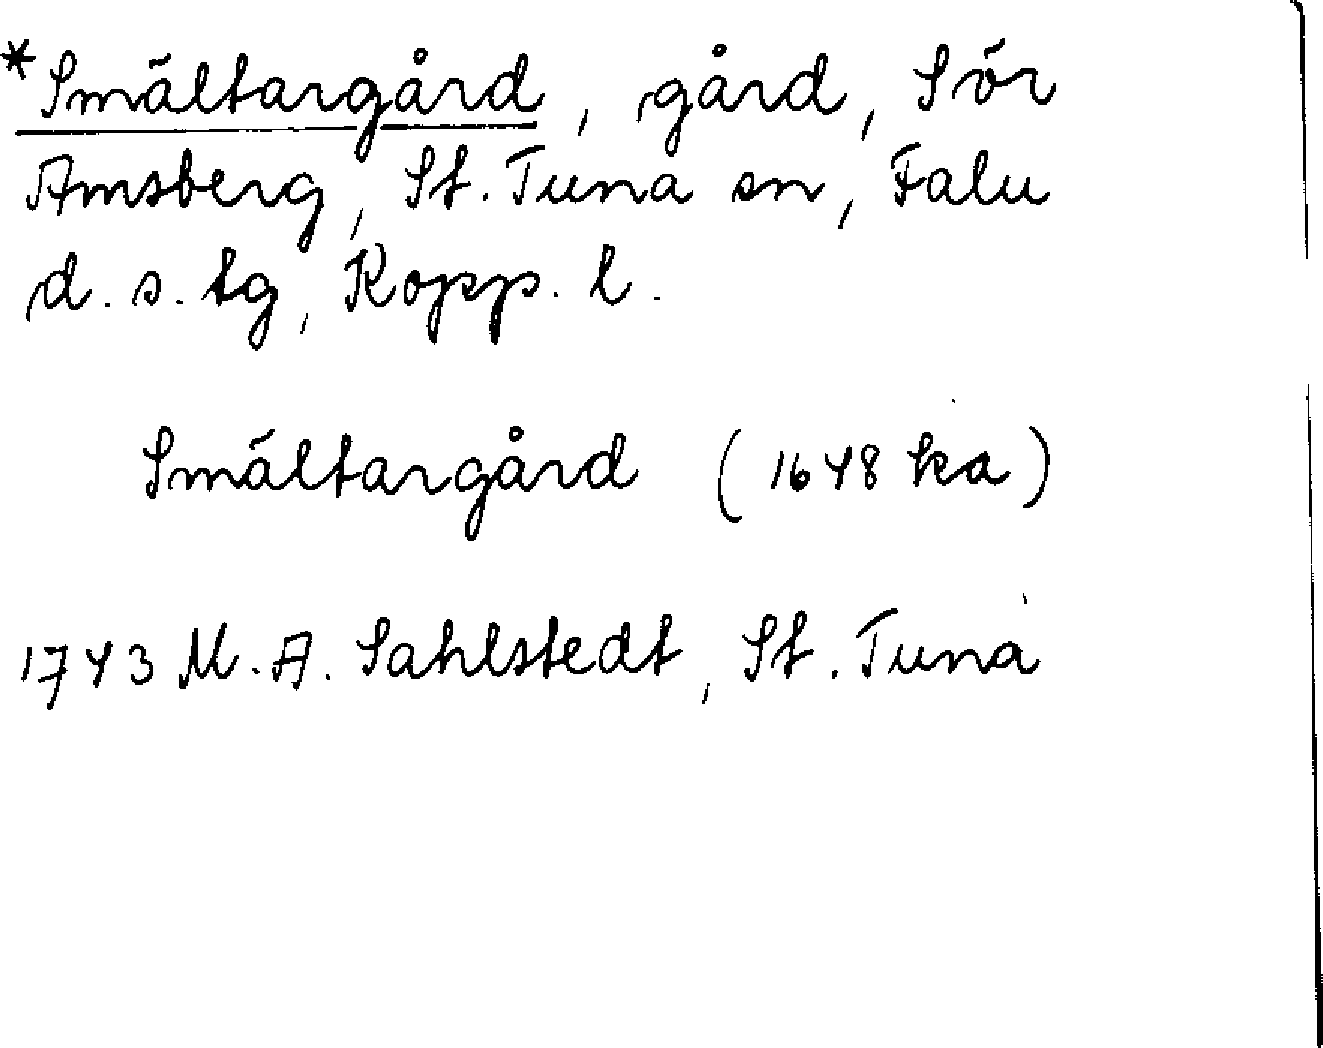 *Smältargård, gård, Sör
Amsberg, St. Tuna sn, Falu
d. s. tg, Kopp. l.
Smältargård (1648 ka)
1743 M. A. Sahlstedt, St. Tuna